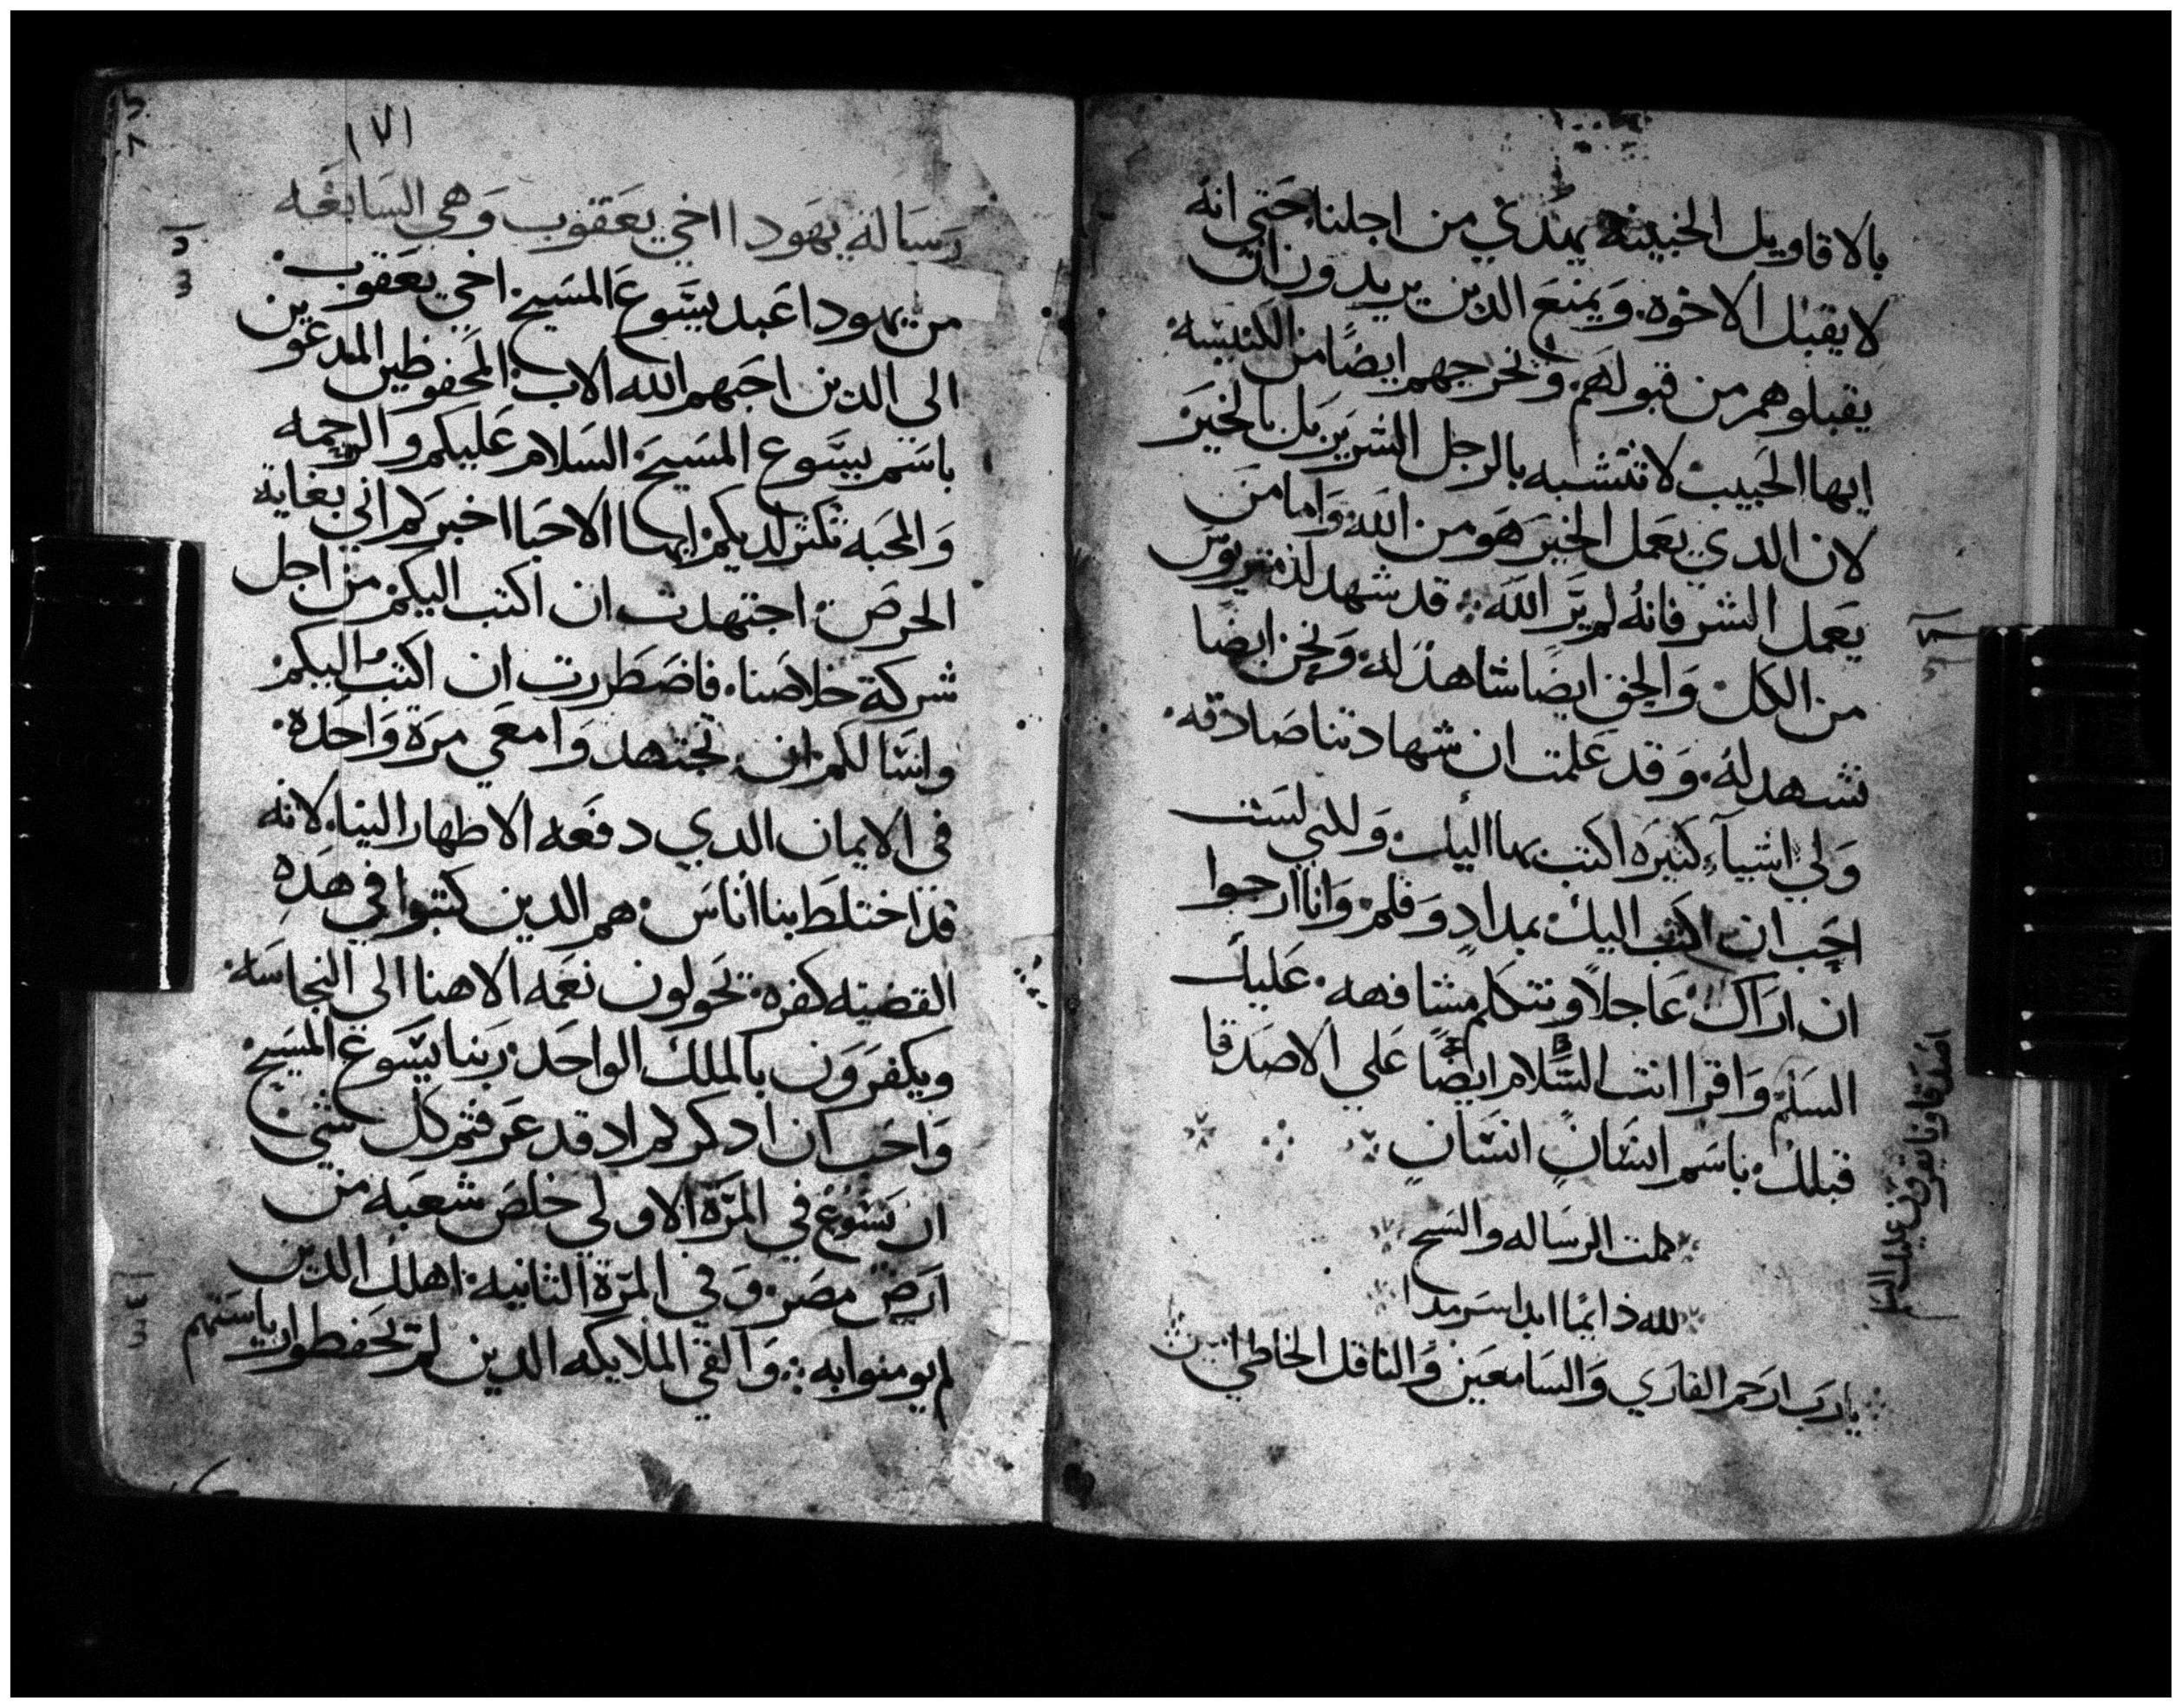 بالاقاويل الخبيثه يهذي من اجلنا حتي انه
لا يقبل الاخوه. ويمنع الدين يريدون ان
يقبلوهم من قبولهم. وتخرجهم ايضًا من الكنيسه
ايها الحبيب لا تتشبه بالرجل الشرير بل بالخير
لان الدي يعمل الخير هو من الله واما من
يعمل الشر فانهُ لم يَر الله: قد شهد لدمتريوس
من الكل والحق ايضًا شاهد له. ونحن ايضا
نشهد لهُ. وقد علمت ان شهادتنا صادقه.
ولي اشيآء كثيره اكتب بها اليك وللني لست
احب ان اكتب اليك بمدادٍ وقلم وانا ارجوا
ان اراك عاجلاً ونتكلم مشافهه. عليك
السلم واقرا انت السَّلام ايضًا علي الاصدقا
قبلك باسم انسانٍ انسانٍ
كملت الرساله والسبح
لله دايمًا ابدا سرمدا
يا رب ارحم القاري والسامعين والناقل الخاطي امين
اصدقاونا يقرون عليك السلم
١٧١
رسالة يهودا اخي يعقوب وهي السابعه
من يهودا عبد يسوع المسيح اخي يعقوب.
الى الدين احبهم الله الاب المحفوظين المدعوين
باسم يسوع المسيح السلام عليكم والرحمه
والمحبه تكثر لديكم ايها الاحبا اخبركم اني بغاية
الحرص اجتهدت ان اكتب اليكم من اجل
شركة خلاصنا. فاضطررت ان اكتب اليكم
واسالكم ان تجتهدوا معي مرة واحدة.
في الايمان الدي دفعه الاطهار الينا. لانه
قد اختلط بنا اناس هم الدين كتبوا في هذه
القضيه كفره. يحولون نعمه الاهنا الى النجاسه.
ويكفرون بالملك الواحد ربنا يسوع المسيح
واحب ان ادكركم اد قد عرفتم كل شي
ان يسوع في المرة الاولي خلص شعبه من
ارض مصر. وفي المرة الثانيه اهلك الدين
لم يومنوا به: والقي الملايكه الدين لم يحفظوا رياستهم